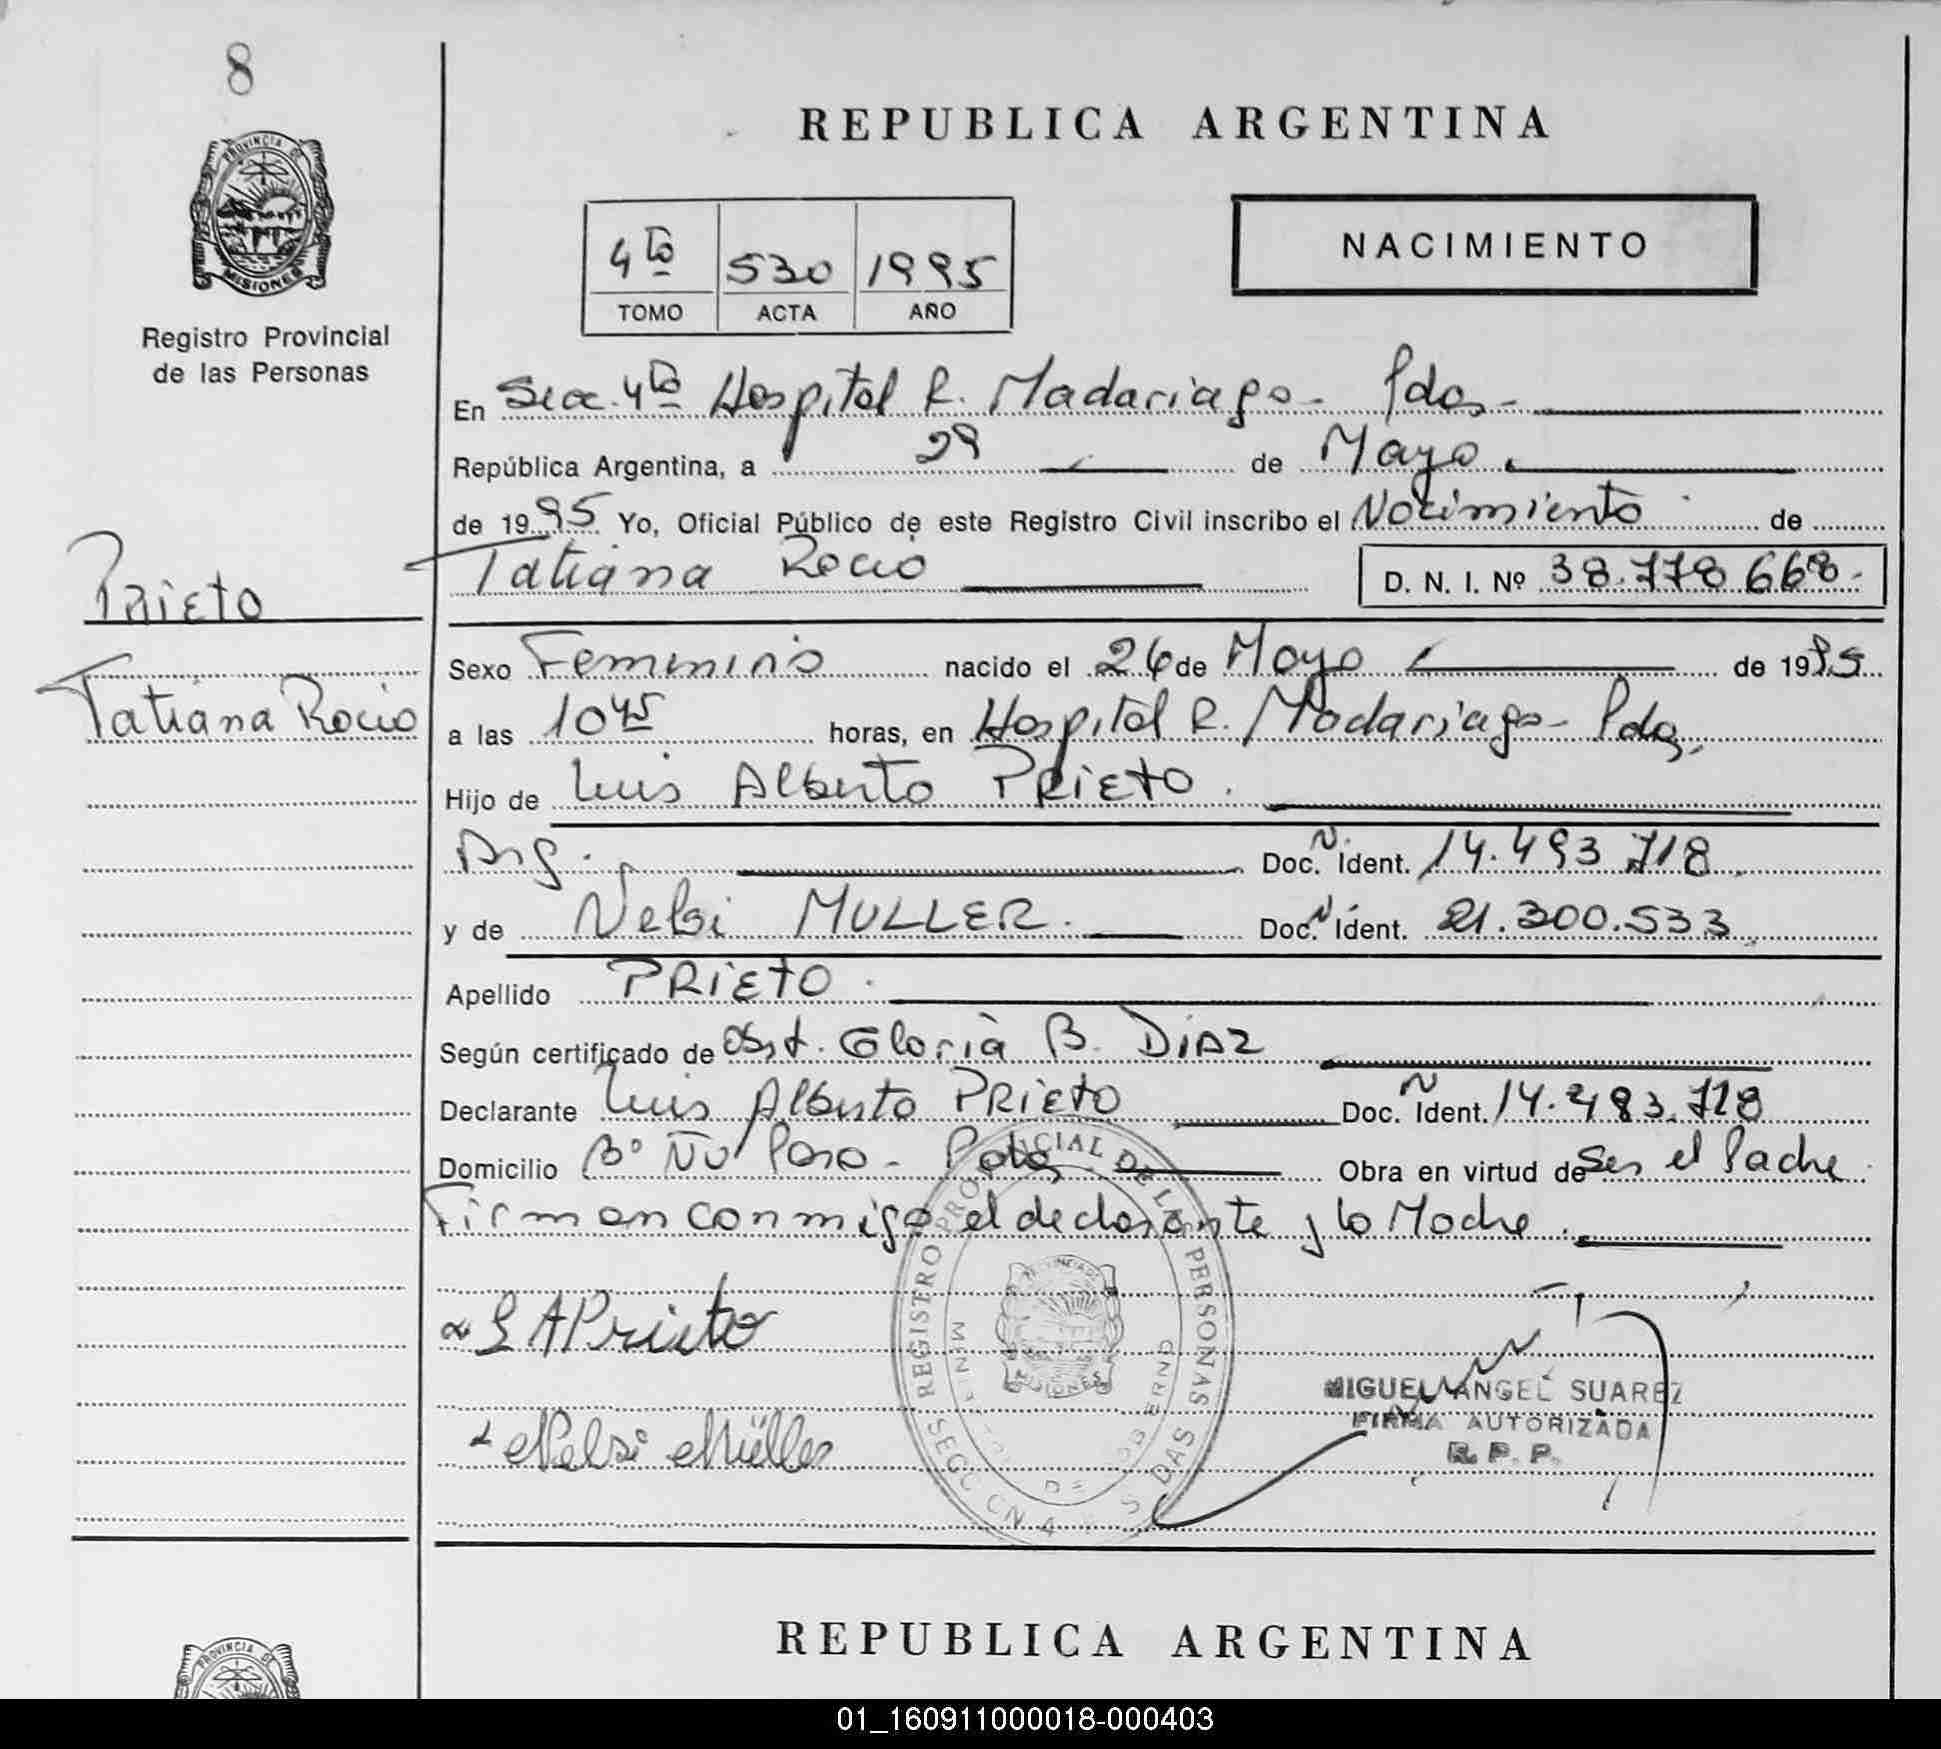 8
REPUBLICA ARGENTINA
PROVINCIA DE
MISIONES
Registro Provincial
de las Personas
4to 530 1995
TOMO ACTA AÑO
NACIMIENTO
En Secc. 4ta Hospital R. Madariaga - Pdas -
República Argentina, a 29 de Mayo
de 1995 Yo, Oficial Público de este Registro Civil inscribo el Nacimiento de
Tatiana Rocio D. N. I. Nº 38.778.668.-
Prieto
Tatiana Rocio
Sexo Femenino nacido el 26 de Mayo de 1995
a las 10 45 horas, en Hospital R. Madariaga - Pdas.
Hijo de Luis Alberto PRIETO.
Arg. Doc. N. Ident. 14.493.718
y de Nelsi MULLER. Doc. N Ident. 21.300.533
Apellido PRIETO.
Según certificado de Obst. Gloria B. DIAZ
Declarante Luis Alberto PRIETO Doc. N Ident. 14.493.718
Domicilio Bº Ñu Pora - Pdas Obra en virtud de Ser el Padre.
Firman conmigo el declarante y la Madre.
L A Prieto
Nelsi Müller
REGISTRO PROVINCIAL DE LAS PERSONAS
MISIONES
MIGUEL ANGEL SUAREZ
FIRMA AUTORIZADA
R. P. P.
REPUBLICA ARGENTINA
PROVINCIA DE
01_160911000018-000403